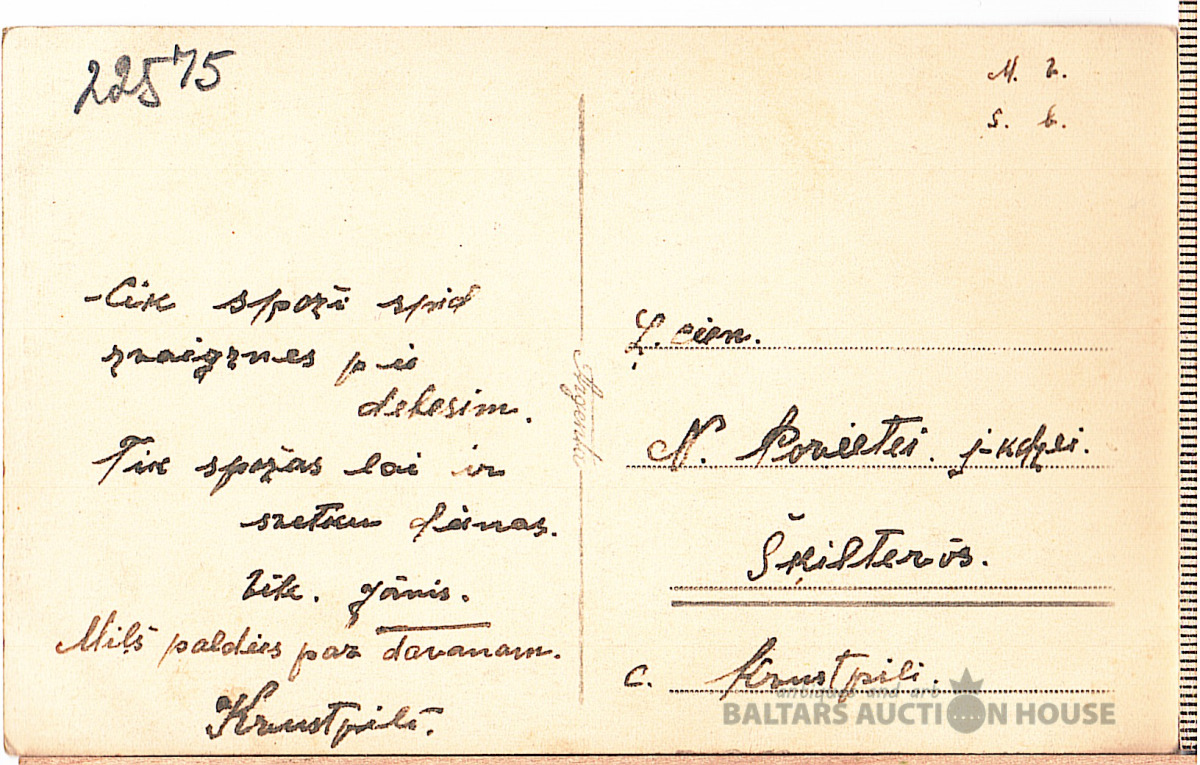 22575
- Cik spoži spīd
zvaigznes pie
debesīm.
Tik spožas lai ir
svētku dienas.
Vēl. Jānis.
Mīļš paldies par davanam.
Krustpilī.
Argenta
M. V.
S. b.
Ļ. cien.
N. j-kdzei.
Šķilteros.
c. Krustpili.
antiques and art
BALTARS AUCTION HOUSE